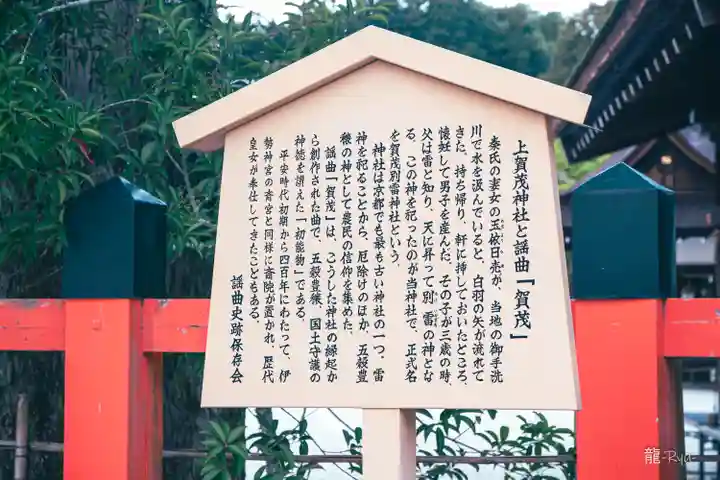 上賀茂神社と謡曲「賀茂」
秦氏の妻女の玉依日売が、当地の御手洗
川で水を汲んでいると、白羽の矢が流れて
きた。持ち帰り、軒に挿しておいたところ、
懐妊して男子を産んだ。その子が三歳の時、
父は雷と知り、天に昇って別雷の神とな
る。この神を祀ったのが当神社で、正式名
を賀茂別雷神社という。
神社は京都でも最も古い神社の一つ、雷
神を祀ることから、厄除けのほか、五穀豊
穣の神として農民の信仰を集めた。
謡曲「賀茂」は、こうした神社の縁起か
ら創作された曲で、五穀豊穣、国土守護の
神徳を讃えた「初能物」である。
平安時代初期から四百年にわたって、伊
勢神宮の斎宮と同様に斎院が置かれ、歴代
皇女が奉仕してきたこともある。
謡曲史跡保存会
龍-Ryu-